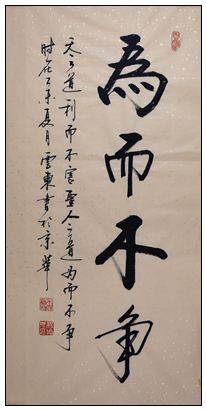 為而不争
天之道利而不害聖人之道为而不争
时在夏月雲東書於京華